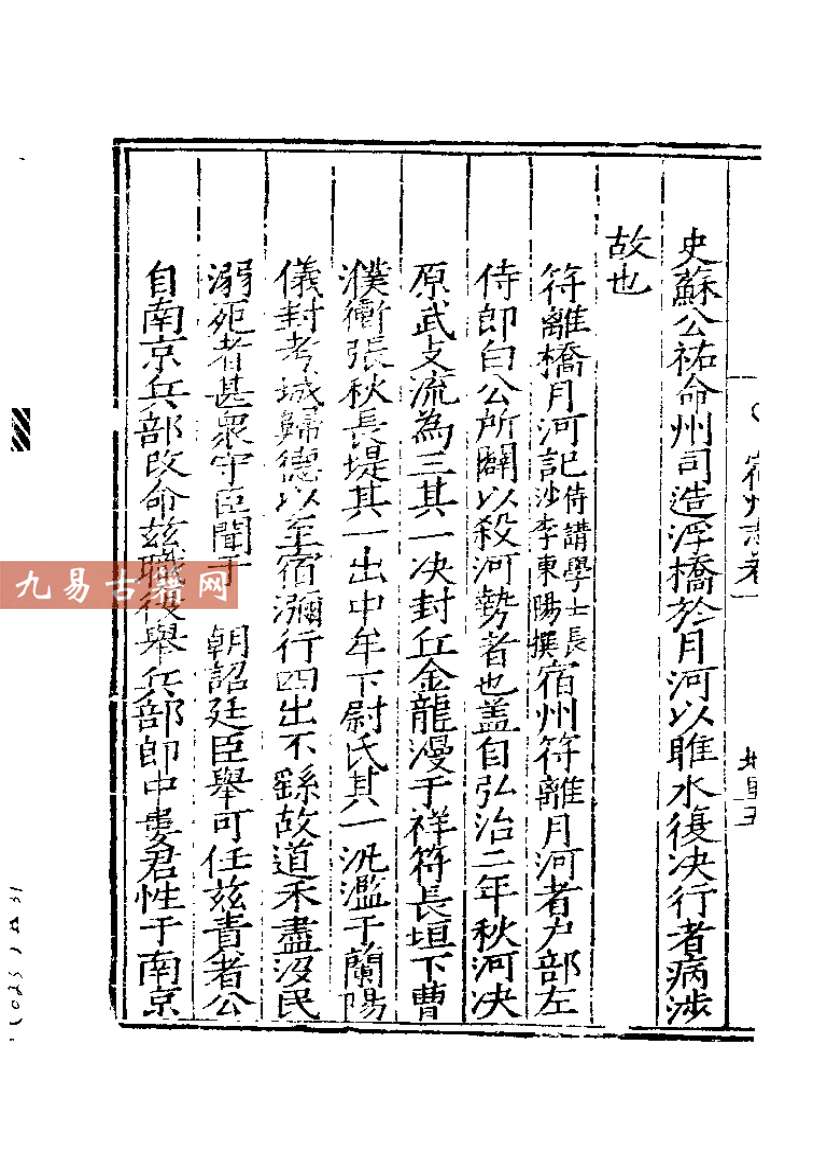 宿州志卷一
地里五
史蘇公祐命州司造浮橋於月河以睢水復决行者病涉
故也
符離橋月河記侍講學士長沙李東陽撰宿州符離月河者户部左
侍郎白公所闢以殺河勢者也盖自弘治二年秋河决
原武支流為三其一决封丘金龍漫于祥符長垣下曹
濮衝張秋長堤其一出中牟下尉氏其一汎濫于蘭陽
儀封考城歸德以至宿瀰行四出不繇故道禾盡没民
溺死者甚衆守臣聞于 朝詔廷臣舉可任兹責者公
自南京兵部改命兹職復舉兵部郎中婁君性于南京
九易古籍网